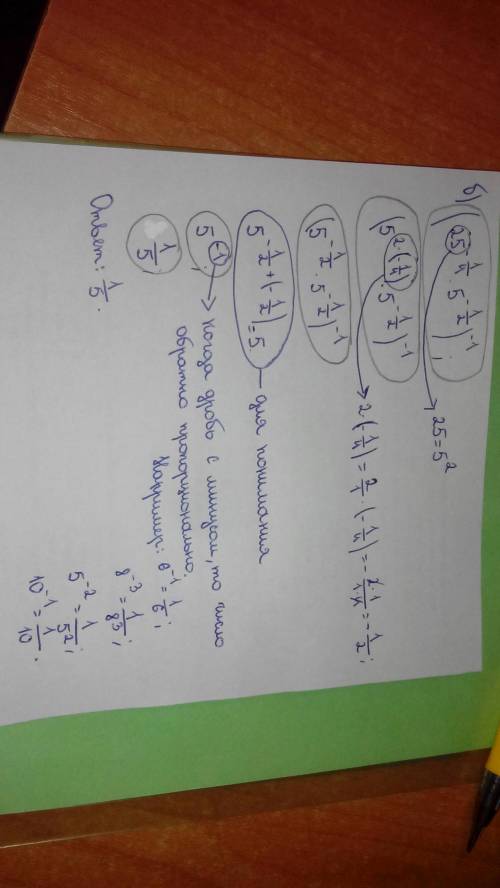 б) (25^{-1/4} · 5^{-1/2})^{-1}; 25 = 5²
(5^{2·(-1/4)} · 5^{-1/2})^{-1} 2·(-1/4) = 2/1 · (-1/4) = - 2·1/1·4 = - 1/2;
(5^{-1/2} · 5^{-1/2})^{-1}
5^{-1/2 + (-1/2)} = 5 — для понимания
5^{-1}; когда дробь с минусом, то число
обратно пропорционально.
Например: 6^{-1} = 1/6;
1/5; 8^{-3} = 1/8³;
5^{-2} = 1/5²;
Ответ: 1/5. 10^{-1} = 1/10;